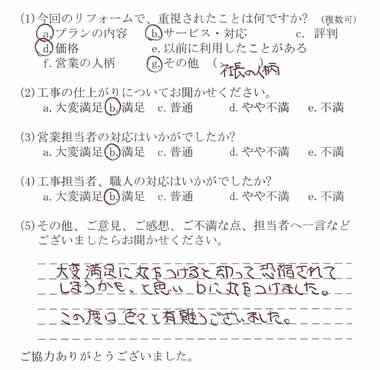 (1)今回のリフォームで、重視されたことは何ですか? (複数可)
a.プランの内容 b.サービス・対応 c. 評判
d.価格 e.以前に利用したことがある
f.営業の人柄 g.その他 (社長の人柄
(2)工事の仕上がりについてお聞かせください。
a.大変満足 b.満足 c.普通 d.やや不満 e.不満
(3)営業担当者の対応はいかがでしたか?
a.大変満足 b.満足 c.普通 d.やや不満 e.不満
(4)工事担当者、職人の対応はいかがでしたか?
a.大変満足 b.満足 c.普通 d.やや不満 e.不満
(5)その他、ご意見、ご感想、ご不満な点、担当者へ一言など
ございましたらお聞かせください。
大変満足に丸をつけると却って恐縮されて
しまうかも、と思い bに丸をつけました。
この度は色々と有難うございました。
ご協力ありがとうございました。